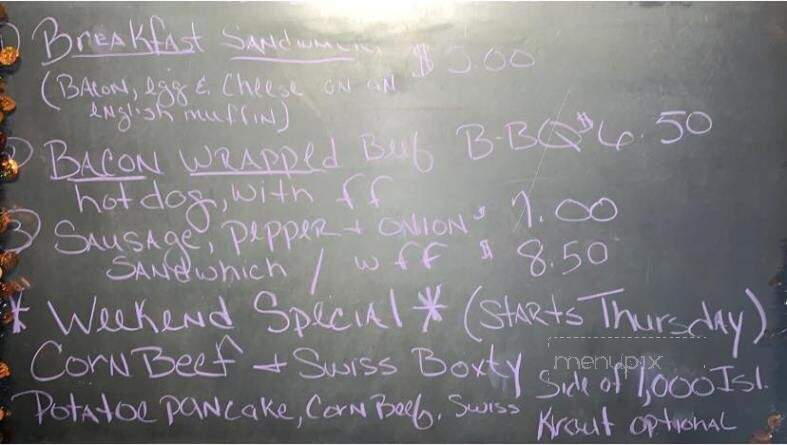 1) Breakfast Sandwhich $5.00
(Bacon, egg & Cheese on an
english muffin)
2) Bacon Wrapped Beef B-BQ $6.50
hot dog, with ff
3) Sausage, pepper + onion $ 7.00
Sandwhich / w ff $ 8.50
* Weekend Special * (Starts Thursday)
Corn Beef + Swiss Boxty
menupix
Side of 1,000 Isl.
Potatoe pancake, Corn Beef, Swiss
Kraut optional